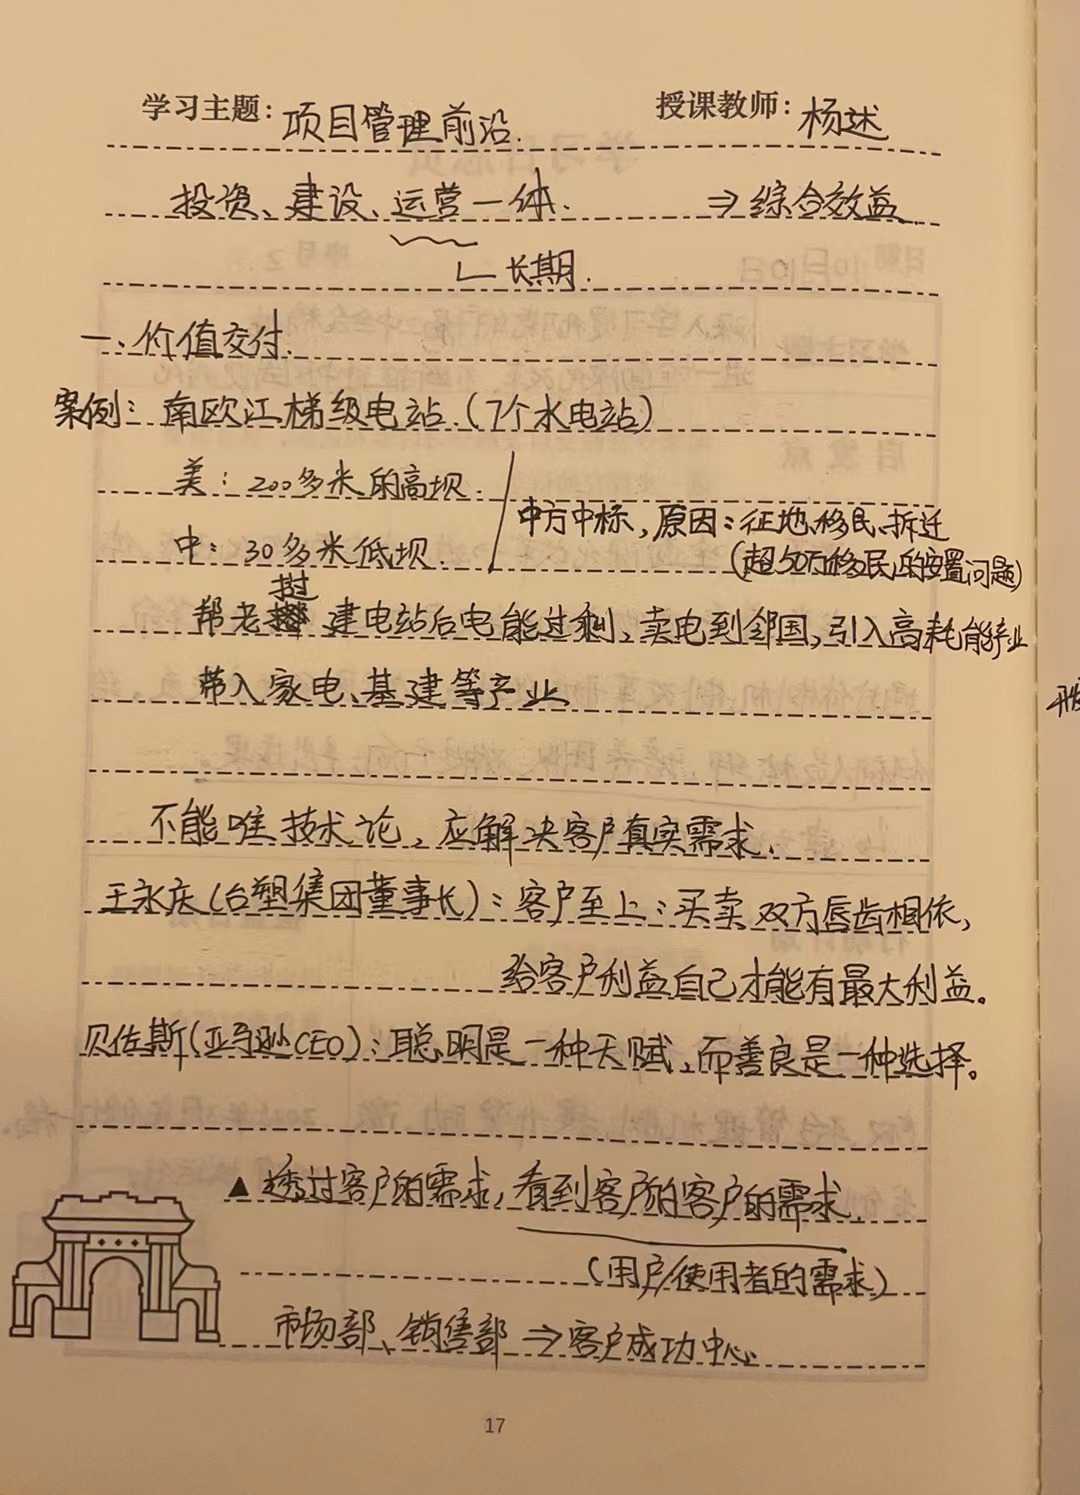 学习主题：项目管理前沿. 授课教师：杨述
投资、建设、运营一体. ⇒ 综合效益
长期.
一、价值交付.
案例：南欧江梯级电站.（7个水电站）
美：200多米的高坝.
中：30多米低坝.
中方中标，原因：征地、移民、拆迁
（超30万移民的安置问题）
帮老挝建电站后电能过剩、卖电到邻国，引入高耗能产业
带入家电、基建等产业
不能唯技术论，应解决客户真实需求.
王永庆（台塑集团董事长）：客户至上：买卖双方唇齿相依，
给客户利益自己才能有最大利益。
贝佐斯（亚马逊CEO）：聪明是一种天赋，而善良是一种选择。
▲透过客户的需求，看到客户的客户的需求.
（用户/使用者的需求）
市场部、销售部 ⇒ 客户成功中心
17